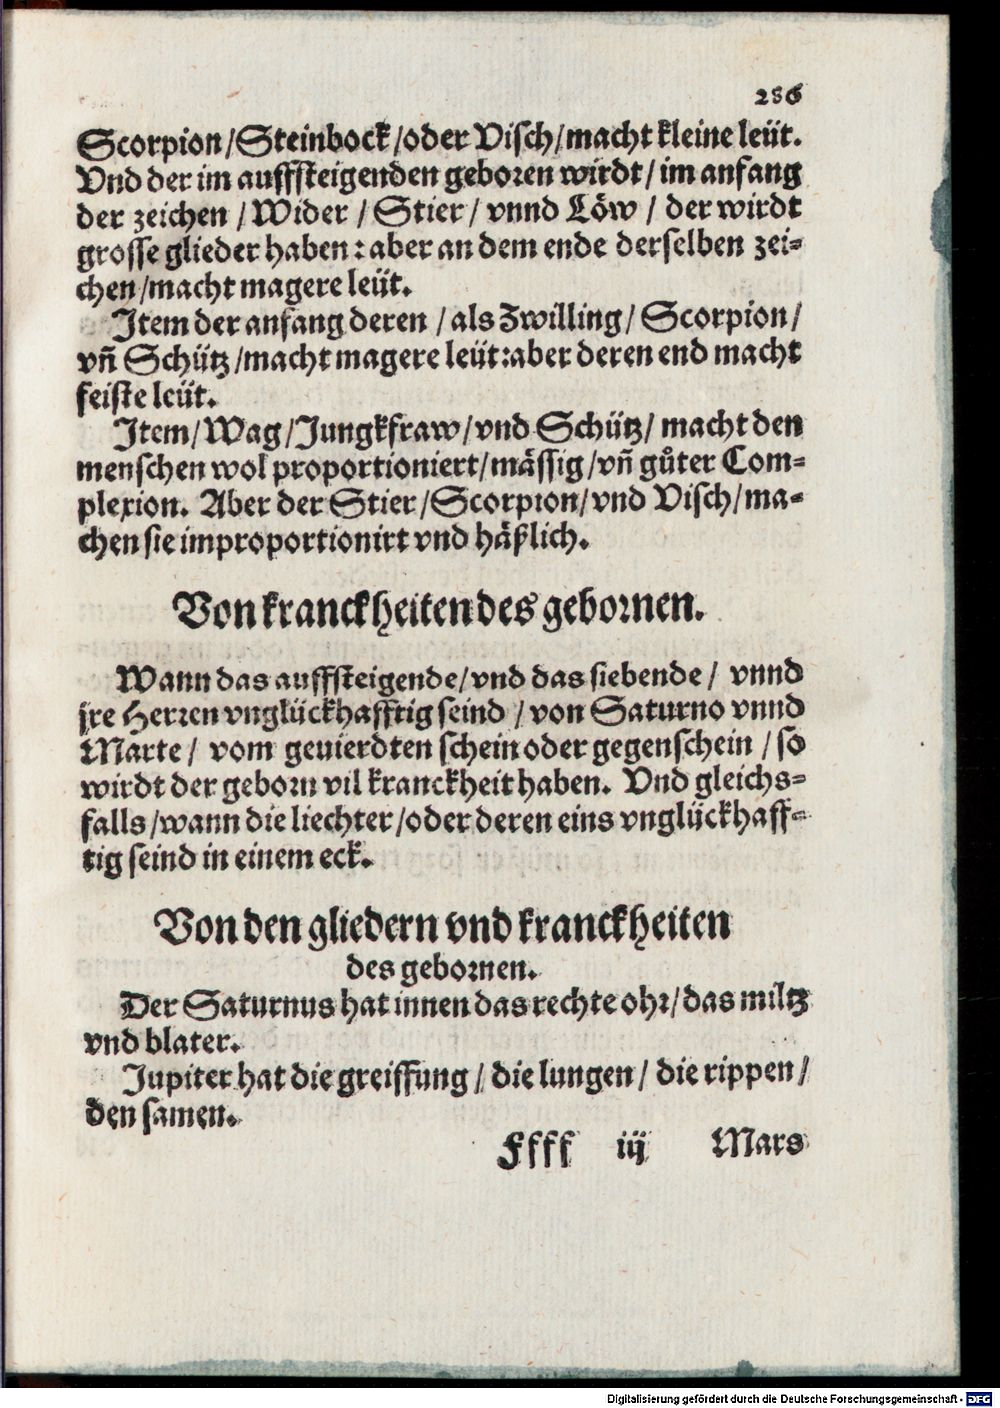 286
Scorpion/Steinbock/oder Visch/macht kleine leüt.
Vnd der im auffsteigenden geboren wirdt/im anfang
der zeichen/Wider/Stier/vnnd Löw/der wirdt
grosse glieder haben: aber an dem ende derselben zei=
chen/macht magere leüt.
Item der anfang deren/als Zwilling/Scorpion/
vñ Schütz/macht magere leüt: aber deren end macht
feiste leüt.
Item/Wag/Jungkfraw/vnd Schütz/macht den
menschen wol proportioniert/mässig/vñ gůter Com=
plexion. Aber der Stier/Scorpion/vnd Visch/ma=
chen sie improportionirt vnd häßlich.
Von kranckheiten des gebornen.
Wann das auffsteigende/vnd das siebende/vnnd
jre Herren vnglückhafftig seind/von Saturno vnnd
Marte/vom geuierdten schein oder gegenschein/so
wirdt der geborn vil kranckheit haben. Vnd gleichs=
falls/wann die liechter/oder deren eins vnglückhaff=
tig seind in einem eck.
Von den gliedern vnd kranckheiten
des gebornen.
Der Saturnus hat innen das rechte ohr/das miltz
vnd blater.
Jupiter hat die greiffung/die lungen/die rippen/
den samen.
Ffff iij Mars
Digitalisierung gefördert durch die Deutsche Forschungsgemeinschaft - DFG